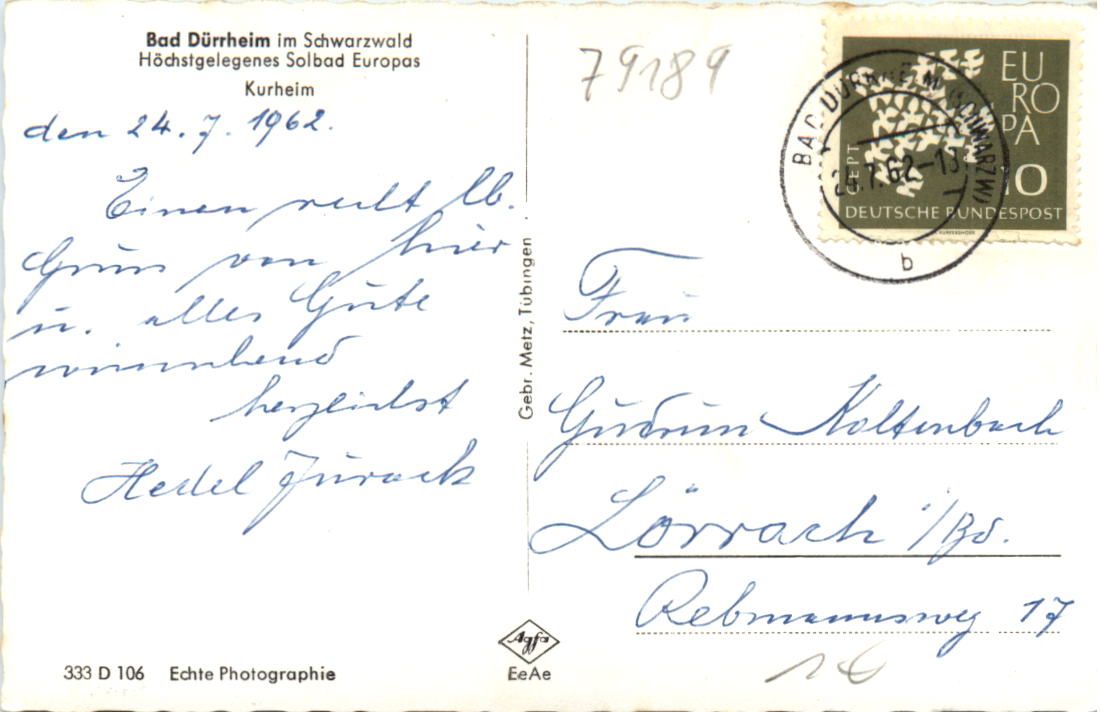 Bad Dürrheim im Schwarzwald
Höchstgelegenes Solbad Europas
Kurheim
den 24. 7. 1962.
Einen recht lb.
Gruss von hier
u. alles Gute
wünschend
herzlichst
Hedel Jurack
333 D 106 Echte Photographie
Gebr. Metz, Tübingen
Agfa
EeAe
79189
EU
RO
PA
CEPT
10
DEUTSCHE BUNDESPOST
BAD DÜRRHEIM (SCHWARZW)
24.7.62-13
b
Frau
Gudrun Koltenbach
Lörrach i/Bd.
Rebmannsweg 17